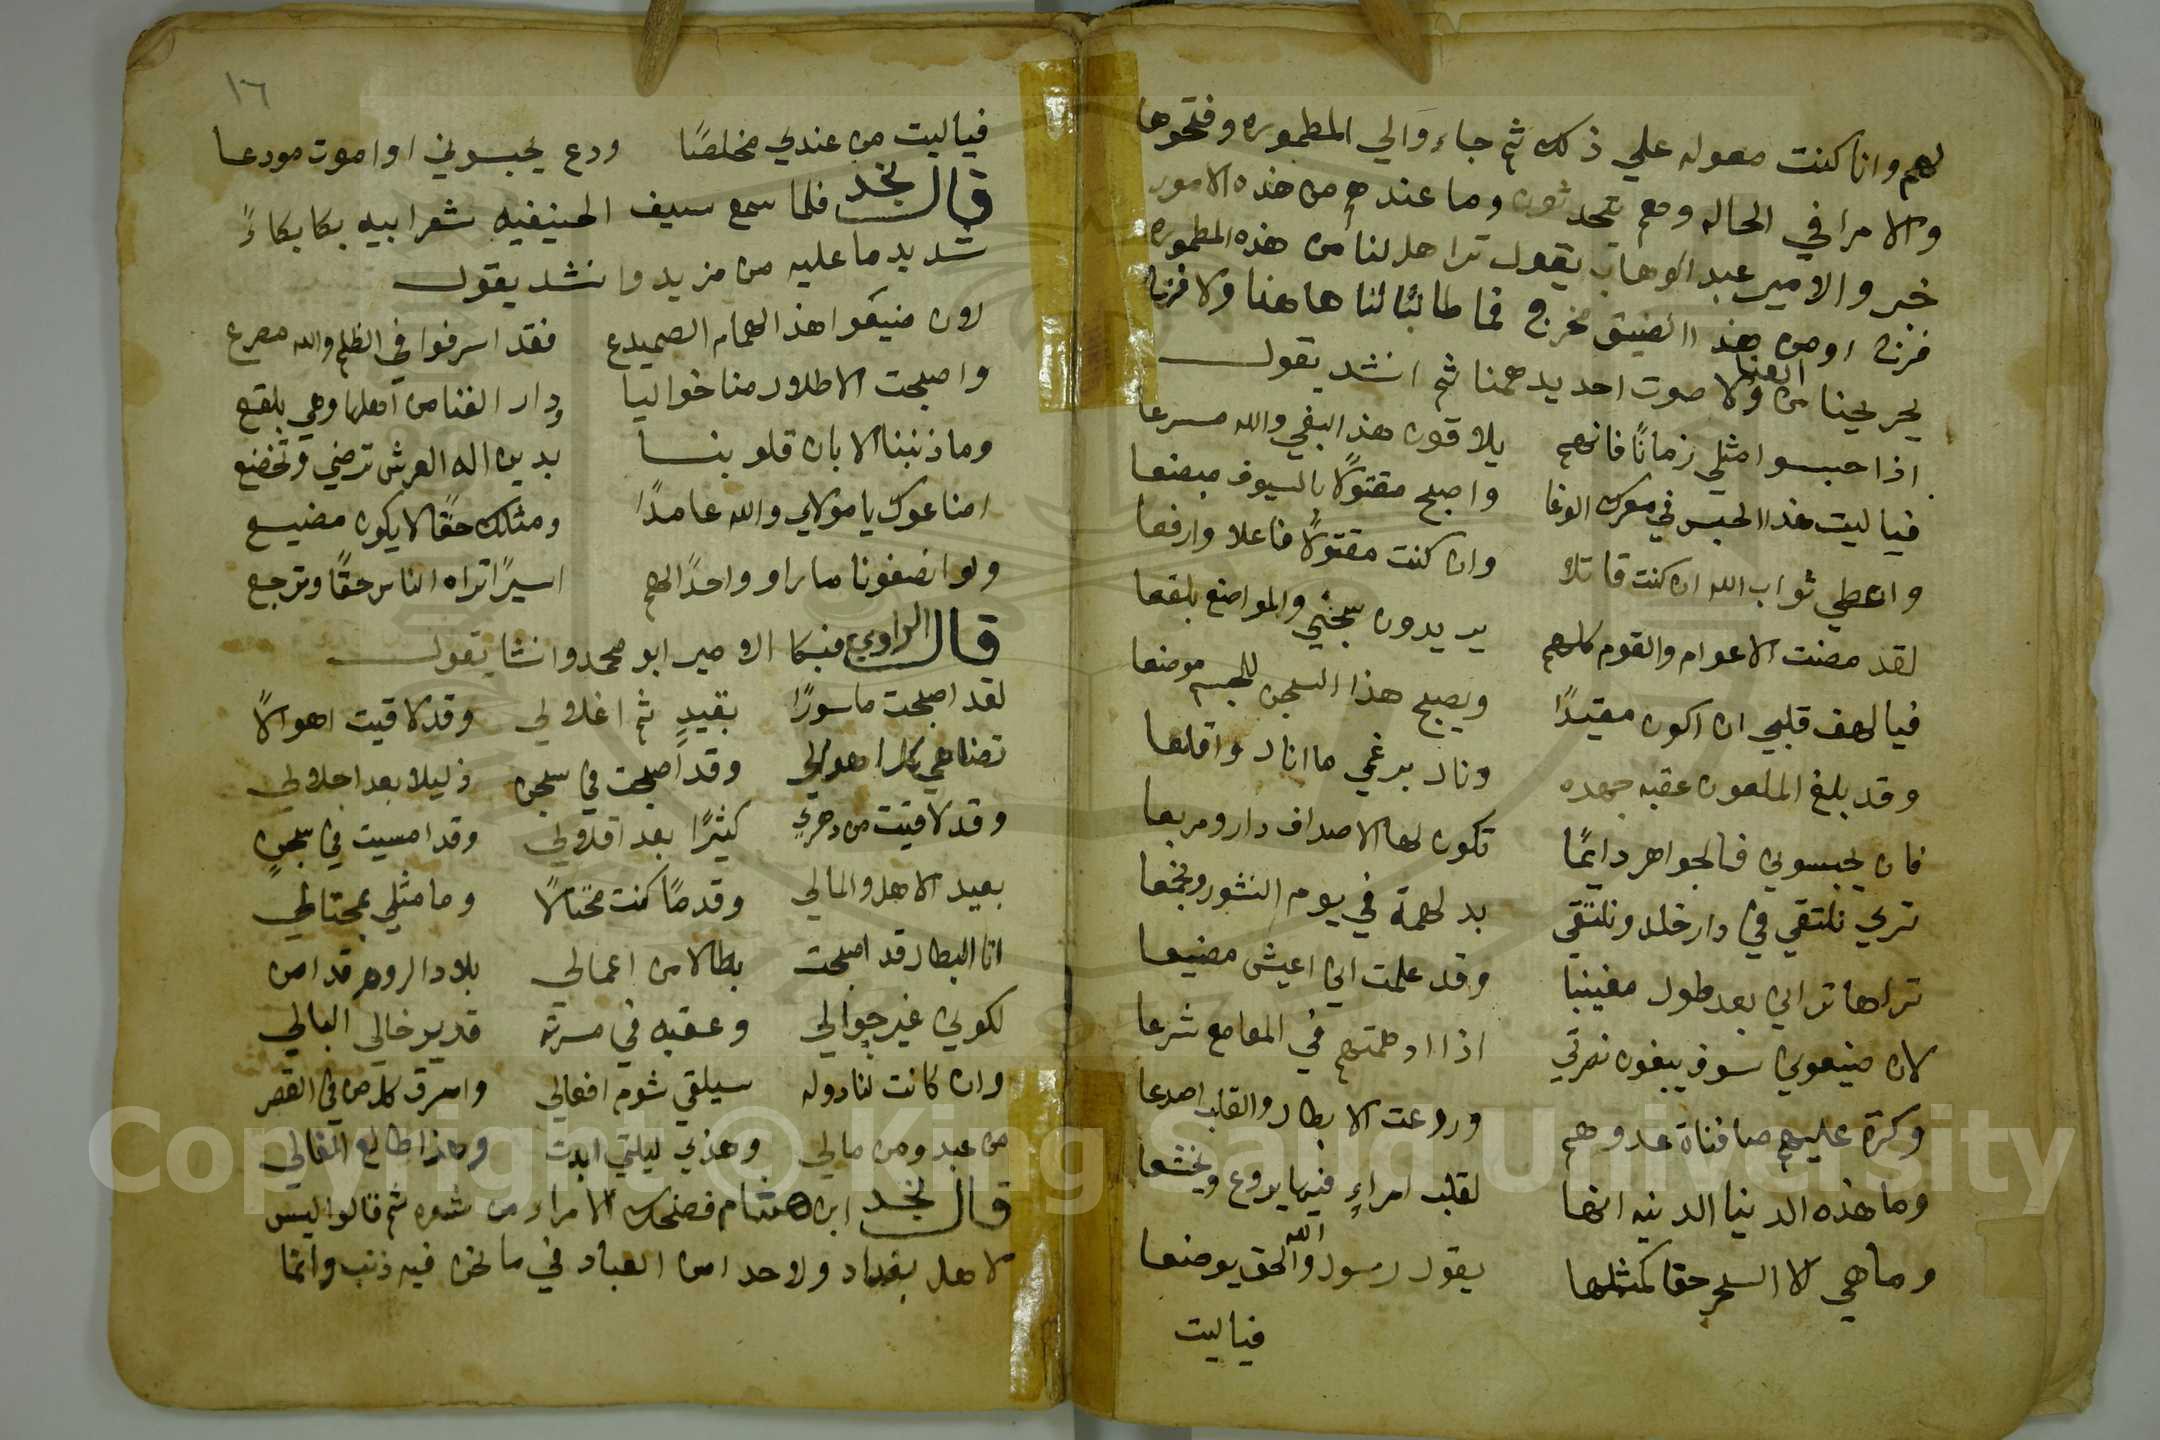 لهم وانا كنت معوله علي ذلك ثم جاء والي المطموره وفتحوها
والامرا في الحاله وهم يتحدثون وما عندهم من هذه الامور
خبر والامير عبد الوهاب يقول ترا هل لنا من هذه المطموره
فرج او من هذا الضيق مخرج فما طا لنا هاهنا ولا
ولا صوت احد يدهمنا ثم انشد يقول
اذا حبسوا مثلي زمانًا فانهم يلاقون هذا البغي والله مسرعا
فيا ليت هذا الحبس في معرك الوغا واصبح مقتولًا بالسيوف مبضعا
واعطي ثواب الله ان كنت قاتلا وان كنت مقتولًا فاعلا وارفعا
لقد مضت الاعوام والقوم كلهم يريدون سجني والمواضع بلقعا
فيا لهف قلبي ان اكون مقيدًا ويصبح هذا السجن للجسم موضعا
وقد بلغ الملعون عقبه جهده ونال برغمي ما انال واقلعا
فان يحبسوني فالجواهر دايمًا تكون لها الاصداف دار ومربعا
تري نلتقي في دار خلد ونلتقي بدلهمة في يوم النشور ونجمعا
تراها تراني بعد طول مغيبنا وقد علمت اني اعيش مضيعا
لان ضيعوني سوف يبغون نصرتي اذا اد همتهم في المعامع شرعا
وكرة عليهم صافناة عدوهم وروعت الابطال والقلب اصدعا
وما هذه الدنيا الدنيه انها لقلب امراءٍ فيها يروع ويخشعا
وما هي لا السجن حقا كمثلها يقول رسول الله والحق يوضعا
فيا ليت
١٦
فيا ليت من عندي مخلصًا ودع يحبسوني او اموت مودعا
قال نجد فلما سمع سيف الحنيفيه شعر ابيه بكا بكاءً
شديد ما عليه من مزيد وانشد يقول
لان ضيعوا هذا الهمام الصميدع فقد اسرفوا في الظلم والله مصرع
واصبحت الاطلال منا خواليا ودار الفنا من اهلها وهي بلقع
وما ذنبنا الا بان قلوبنا بدين اله العرش ترضي وتخضع
اضاعوك يا مولاي والله عامدًا ومثلك حقًا لا يكون مضيع
ولو انصفونا ما راو واحدًا لهم اسيرًا تراه الناس حقًا وترجع
قال الراوي فبكا الامير ابو محمد وانشا يقول
لقد اصبحت ماسورًا بقيدٍ ثم اغلالي وقد لاقيت اهوالًا
تضاهي كل اهوالي وقد اصبحت في سجن ذليلا بعد اجلالي
وقد لاقيت من دهري كثيرًا بعد اقلالي وقد امسيت في سجنٍ
بعيد الاهل والمالي وقدمًا كنت مختالًا وما مثلي بمحتالي
انا البطال قد اصبحت بطالا من اعمالي بلاد الروم قد امن
لكوني غير جوالي وعقبه في مسرته قرير خالي البالي
وان كانت لنا دوله سيلقي شوم افعالي واسرق كل من في القصر
من عبد ومن مالي وهذي ليلتي ابدت وهذا طالع الفالي
قال نجد ابن هشام فضحك الامراء من شعره ثم قالوا ليس
لاهل بغداد ولا حد امن العباد في ما نحن فيه ذنب وانما